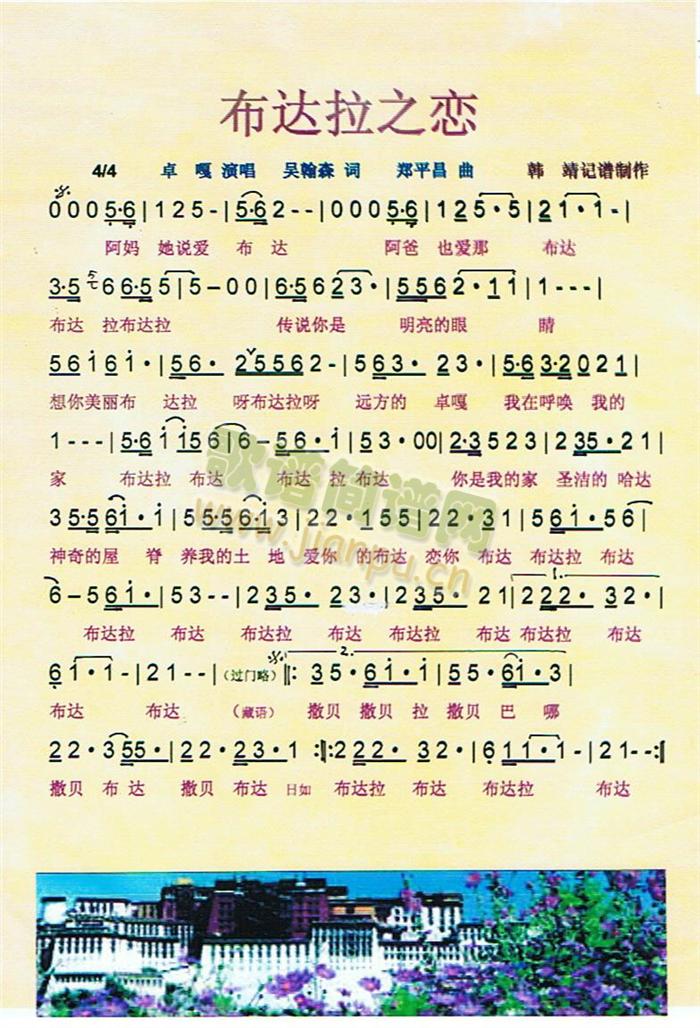 布达拉之恋
4/4 卓 嘎 演唱 吴翰森 词 郑平昌 曲 韩 靖记谱制作
0 0 0 5·6 | 1 2 5 - | 5·6 2 - - | 0 0 0 5·6 | 1 2 5 · 5 | 2 1 · 1 - |
阿妈 她说爱 布 达 阿爸 也爱那 布达
3·5 6 6·5 5 | 5 - 0 0 | 6·5 6 2 3 · | 5 5 5 6 2 · 1 1 | 1 - - - |
布达 拉布达拉 传说你是 明亮的眼 睛
5 6 1 6 1 · | 5 6 · 2 5 5 5 6 2 - | 5 6 3 · 2 3 · | 5·6 3·2 0 2 1 |
想你美丽布 达拉 呀布达拉呀 远方的 卓嘎 我在呼唤 我的
1 - - - | 5·6 1 1 5 6 | 6 - 5 6 · 1 | 5 3 · 0 0 | 2·3 5 2 3 | 2 3 5 · 2 1 |
家 布达拉 布达 布达 拉 布达 你是我的家 圣洁的 哈达
3 5·5 6 1 · 1 | 5 5·5 6·1 3 | 2 2 · 1 5 5 | 2 2 · 3 1 | 5 6 1 · 5 6 |
神奇的屋 脊 养我的土 地 爱你 的布达 恋你 布达 布达拉 布达
6 - 5 6 1 · | 5 3 - - | 2 3 5 · 2 3 · | 2 3 5 · 2 1 | 2 2 2 · 3 2 · |
1.
布达拉 布达 布达拉 布达 布达拉 布达 布达拉 布达
6 1 · 1 - | 2 1 - - | (过门略) 𝄆 3 5 · 6 1 · 1 | 5 5 · 6 1 · 3 |
2.
布达 布达 (藏语) 撒贝 撒贝 拉 撒贝 巴 哪
2 2 · 3 5 5 · | 2 2 · 2 3 · 1 :‖: 2 2 2 · 3 2 · | 6 1 1 · 1 | 2 1 - - :‖
撒贝 布 达 撒贝 布达 日如 布达拉 布达 布达拉 布达
歌谱简谱网
www.jianpu.cn